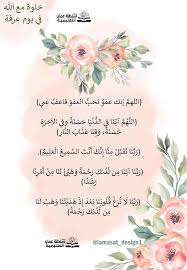 خلوة مع الله
في يوم عرفة
(اللهم إنك عفو تحب العفو فاعف عني)
(اللَّهُمَّ آتِنَا فِي الدُّنْيَا حَسَنَةً وَفِي الْآخِرَةِ
حَسَنَةً، وَقِنَا عَذَابَ النَّارِ)
(رَبَّنَا تَقَبَّلْ مِنَّا إِنَّكَ أَنْتَ السَّمِيعُ الْعَلِيمُ).
(رَبَّنَا آتِنَا مِنْ لَدُنْكَ رَحْمَةً وَهَيِّئْ لَنَا مِنْ أَمْرِنَا
رَشَدًا)
(رَبَّنَا لَا تُزِغْ قُلُوبَنَا بَعْدَ إِذْ هَدَيْتَنَا وَهَبْ لَنَا
مِنْ لَدُنْكَ رَحْمَةً)
@lamasat_design1